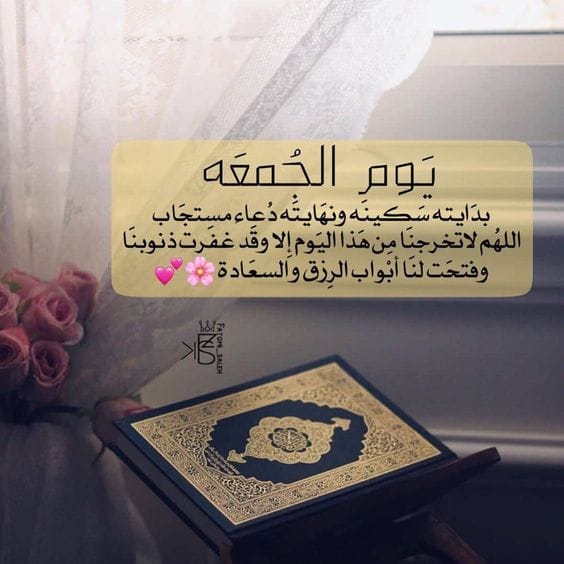 يَوم الجُمعَه
بدَايته سَكينَه ونهَايتِه دُعاء مستجَاب
اللهُم لاتخرجنَا مِن هَذا اليَوم إلا وقَد غفَرت ذنوبنَا
وفتحَت لنَا أبْواب الرِزق والسعَادة 🌸💕
FATOM_SALEH